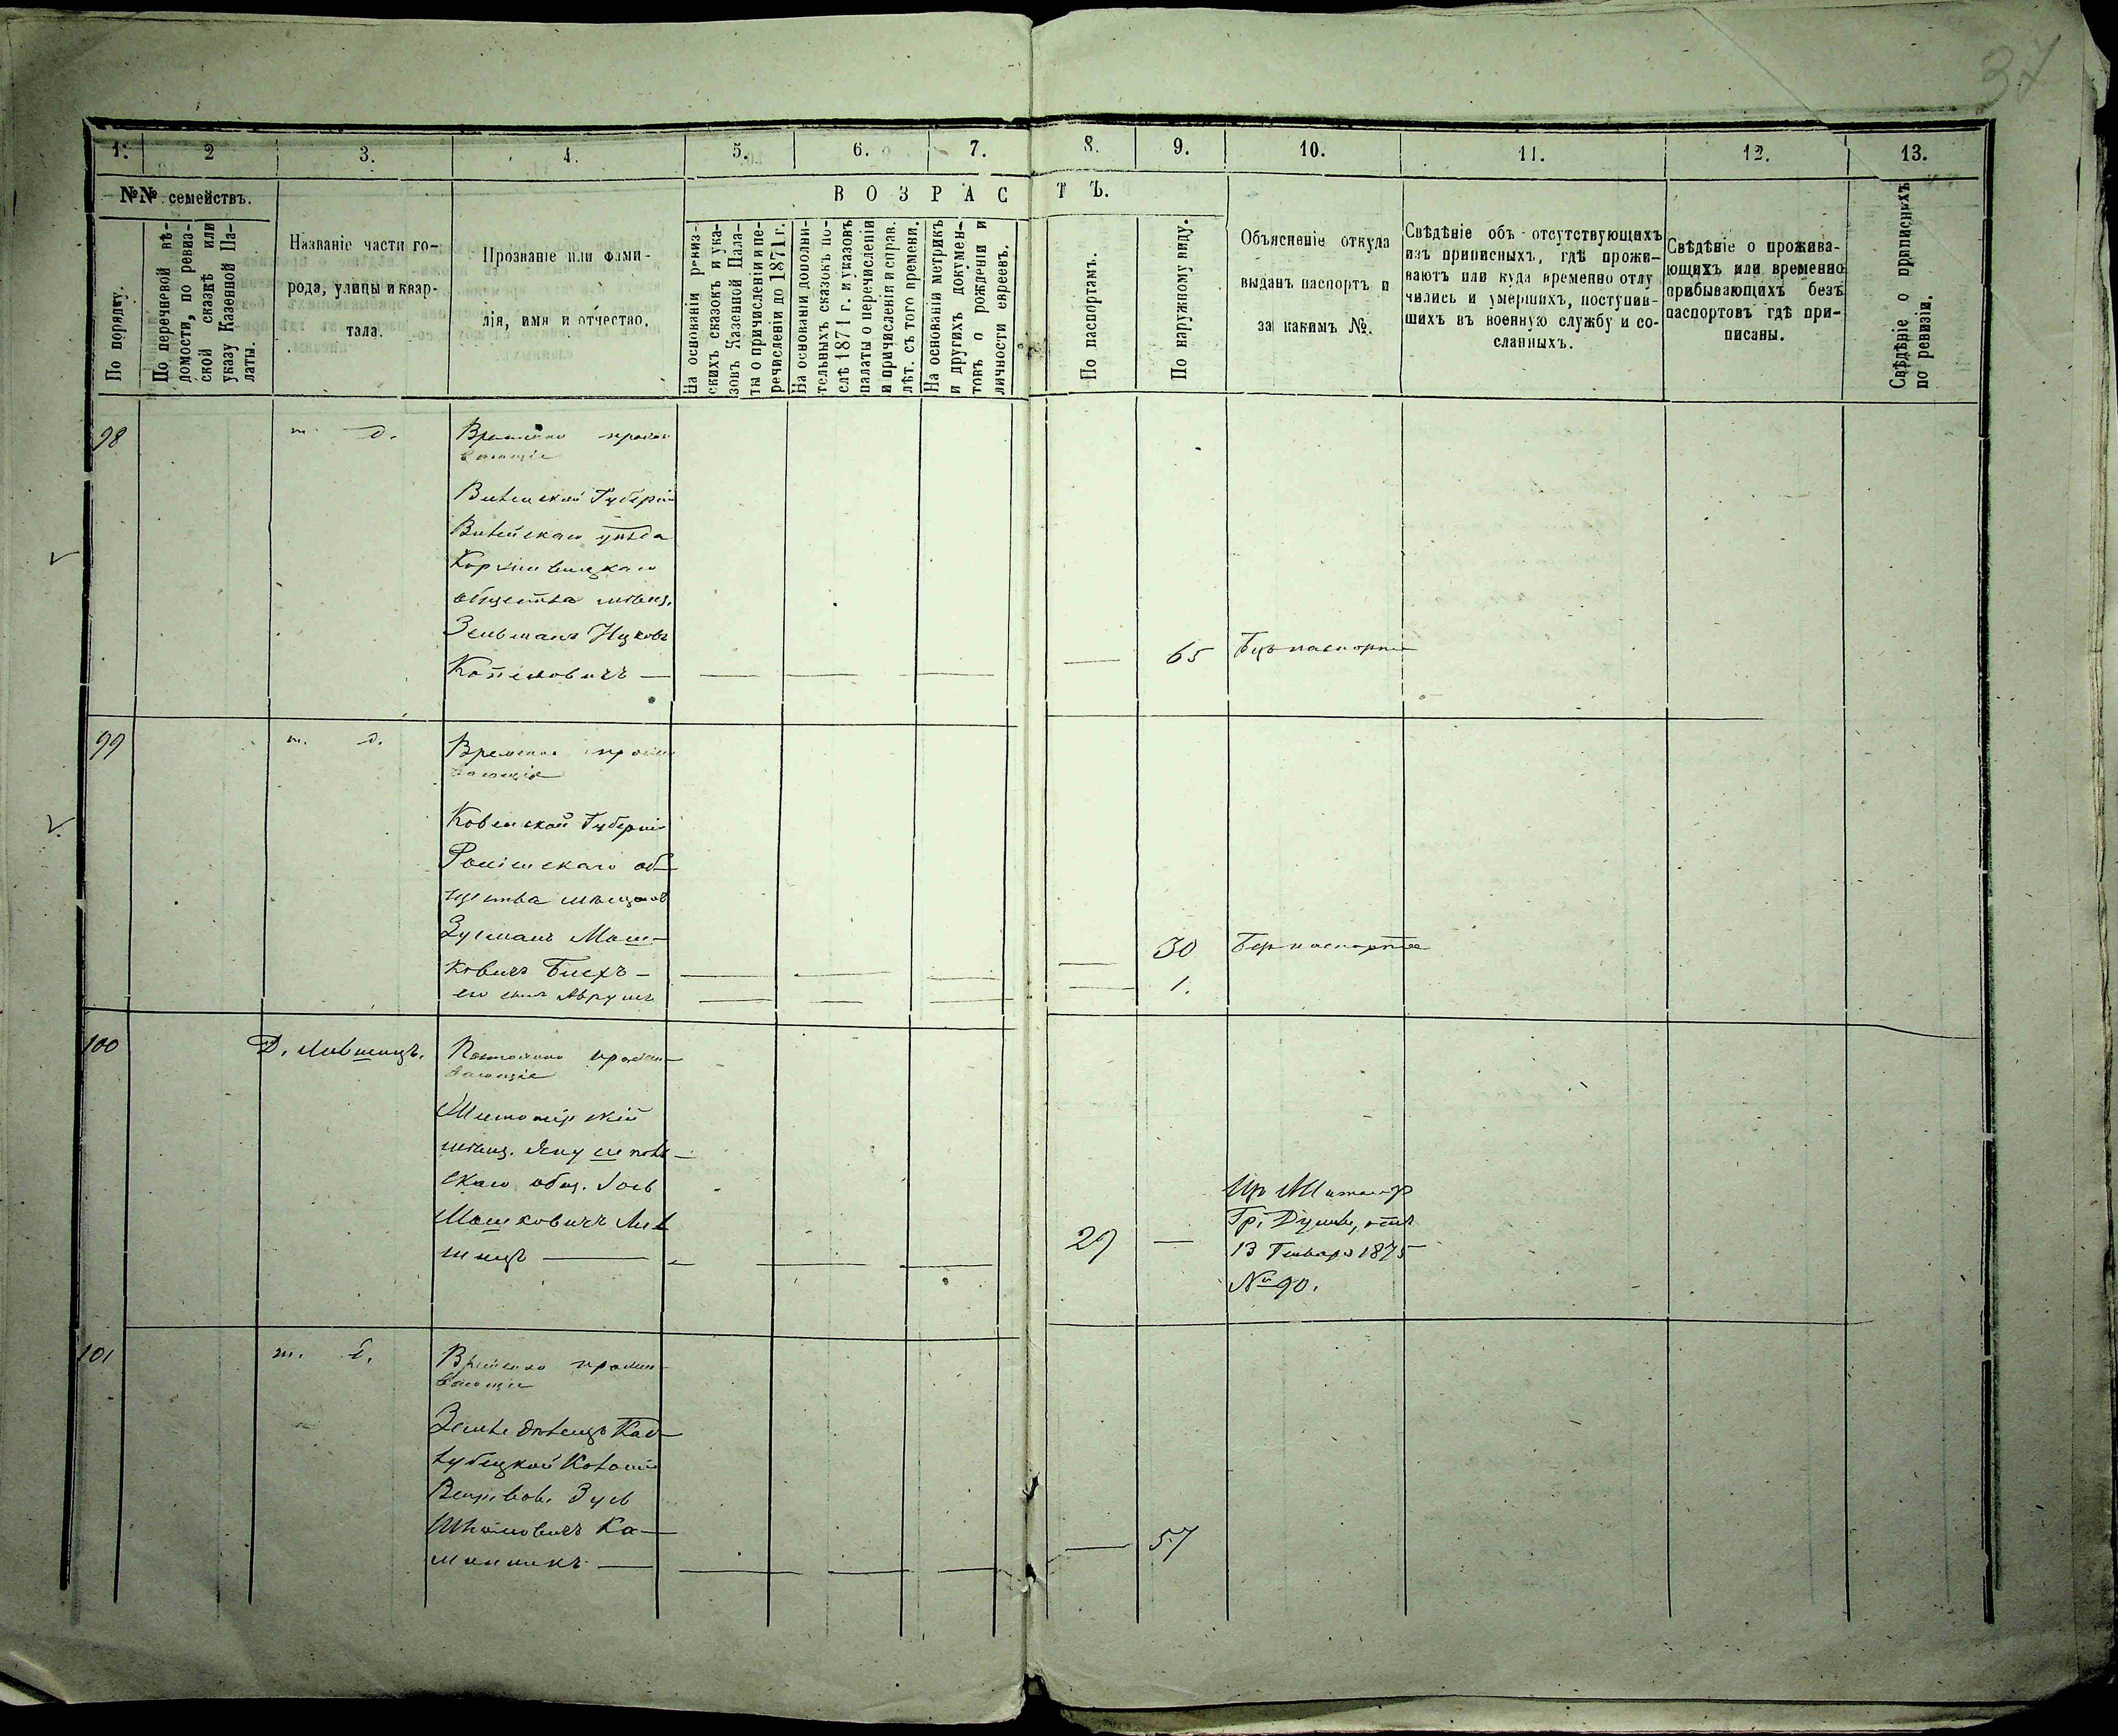 37
1. 2 3. 4. 5. 6. 7. 8. 9. 10. 11. 12. 13.
№№ семействъ.
По порядку.
По перечневой вѣ-
домости, по ревиз-
ской сказкѣ или
указу Казенной Па-
латы.
Названіе части го-
рода, улицы и квар-
тала.
Прозваніе или фами-
лія, имя и отчество.
ВОЗРАСТЪ.
На основаніи ревиз-
скихъ сказокъ и ука-
зовъ Казенной Пала-
ты о причисленіи и пе-
речисленіи до 1871 г.
На основаніи дополни-
тельныхъ сказокъ по-
слѣ 1871 г. и указовъ
палаты о перечисленіи
и причисленіи и справ.
лѣт. съ того времени.
На основаніи метрикъ
и другихъ докумен-
товъ о рожденіи и
личности евреевъ.
По паспортамъ.
По наружному виду.
Объясненіе откуда
выданъ паспортъ и
за какимъ №.
Свѣдѣніе объ отсутствующихъ
изъ приписныхъ, гдѣ прожи-
ваютъ или куда временно отлу
чились и умершихъ, поступив-
шихъ въ военную службу и со-
сланныхъ.
Свѣдѣніе о прожива-
ющихъ или временно
прибывающихъ безъ
паспортовъ гдѣ при-
писаны.
Свѣдѣніе о приписныхъ
по ревизіи.
98 т. д. Временно прожи
вающіе
Виленской Губерніи
Вилейскаго уѣзда
общества мѣщ.
Зельманъ Ицковъ
— — — — 65 Безъ паспорта
99 т. д. Временно прожи
вающіе
Ковенской Губерніи
общества мѣщанинъ
Зусманъ Мош-
ковичъ — — — — — 30 Безъ паспорта
его сынъ Абрумъ — — — — 1.
100 Д. Лившица. Постоянно прожи-
вающіе
Житомірскій
мѣщ.
скаго общ.
Мошковичъ Лив
шицъ — — — — 29 —
Изъ Житомір
Гр. Думы, отъ
13 Января 1875
№ 90.
101 т. д. Временно прожи-
вающіе
Земледѣлецъ
Колоніи
Зусь
Шлiомовичъ Ка-
минникъ — — — — — 57